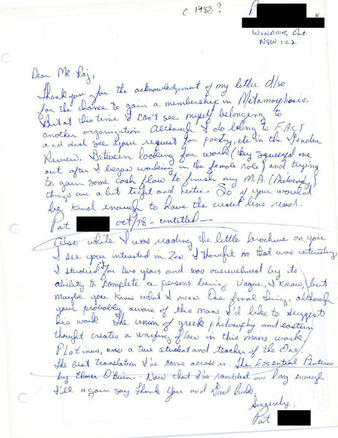 c. 1988?
P
WINDSOR, Ont.
N9W 1C2
Dear Mr Raj,
Thank you for the acknowledgement of my letter. Also
for the chance to gain a membership in Metamorphosis.
But at this time I can't see myself belonging to
another organization. Although I do belong to F.A.C.T
and did see your request for poetry, etc in the Gender
Review. Between looking for work (they squeezed me
out after I began working in the female role) and trying
to gain some cash flow to finish my M.A. (Historical)
things are a bit tight and hectic. So if you would
be kind enough to have the cheque line read.
Pat oct/78 - untitled -
Also while I was reading the little brochure on you
I see your intrested in Zen. I thought that was interesting.
I studied for two years and was overwhelmed by its
ability to complete a persons being. Vague, I know, but
maybe you know what I mean. One final thing, although
your probably aware of this man I'd like to suggest
his work. The union of greek philosophy and eastern
thought creates a unifying flow in this mans work.
Plotinus, was a true student and teacher of the One.
The best translation I've come across is The Essential Plotinus
by Elmer O'Brien. Now that I've rambled on long enough
I'll again say Thank You and Good luck.
Sincerely,
Pat